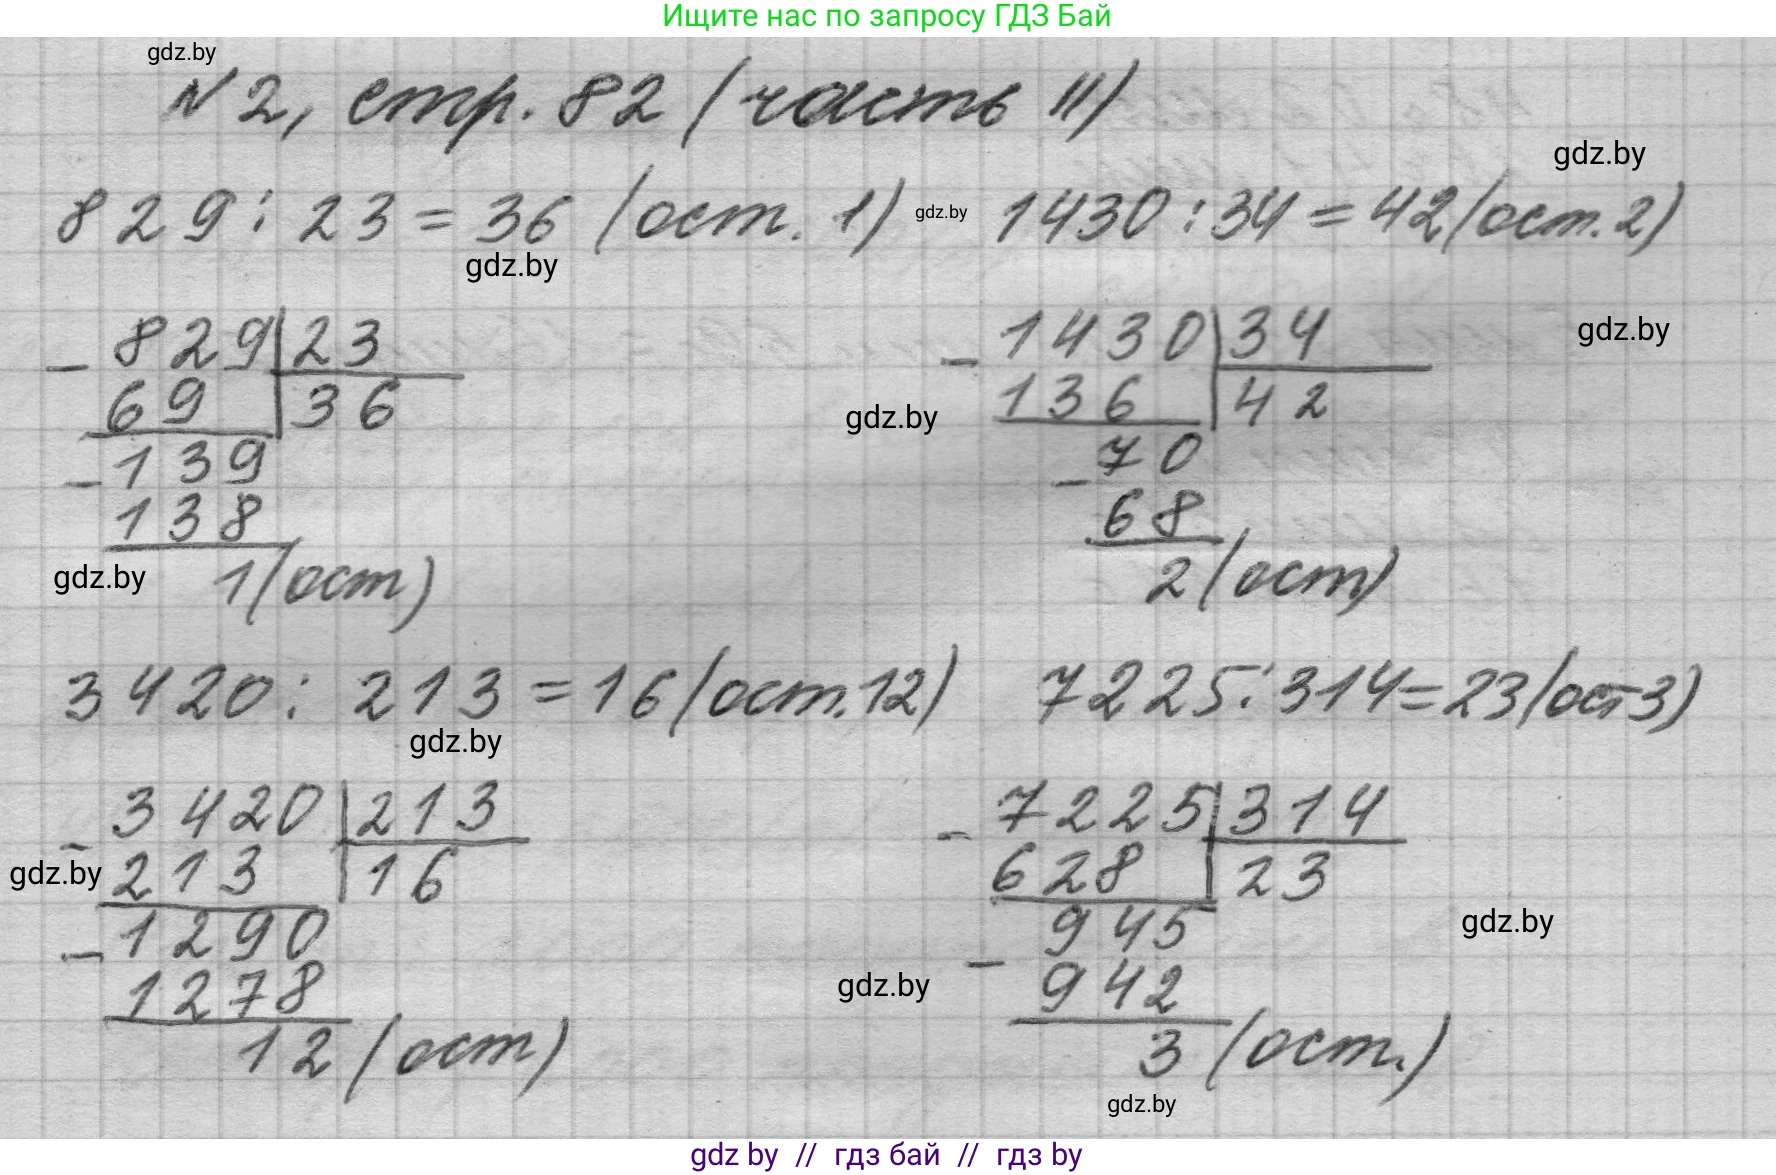 Ищите нас по запросу ГДЗ Бай
gdz.by
№2, стр. 82 (часть II)
gdz.by
829 : 23 = 36 (ост. 1) gdz.by 1430 : 34 = 42 (ост. 2)
gdz.by
829 23
36
69
139
138
1 (ост)
gdz.by
1430 34
42
136
70
68
2 (ост)
gdz.by
gdz.by
3420 : 213 = 16 (ост. 12) 7225 : 314 = 23 (ост 3)
gdz.by
3420 213
16
213
1290
1278
12 (ост)
gdz.by
7225 314
23
628
945
942
3 (ост.)
gdz.by
gdz.by
gdz.by
gdz by // гдз бай // гдз by